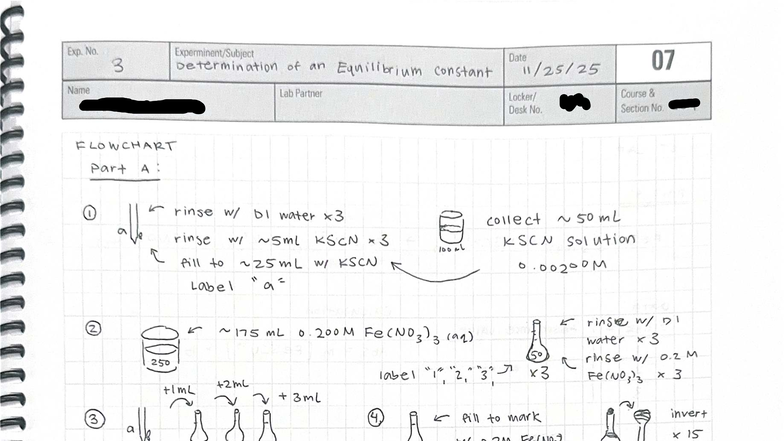 Exp. No. 3
Experiment/Subject Determination of an Equilibrium Constant
Date 11/25/25
07
Name
Lab Partner
Locker/Desk No.
Course & Section No.
FLOWCHART
Part A:
① a
rinse w/ DI water x3
rinse w/ ~5mL KSCN x3
fill to ~25mL w/ KSCN
Label "a"
100 mL
collect ~50mL
KSCN solution
0.00200M
② 250
~175 mL 0.200M Fe(NO3)3 (aq)
label "1", "2", "3"
50
x3
rinse w/ DI
water x3
rinse w/ 0.2 M
Fe(NO3)3 x3
③ a
+1mL
+2mL
+3mL
④
fill to mark
w/ 0.2M Fe(NO3)
invert
x 15